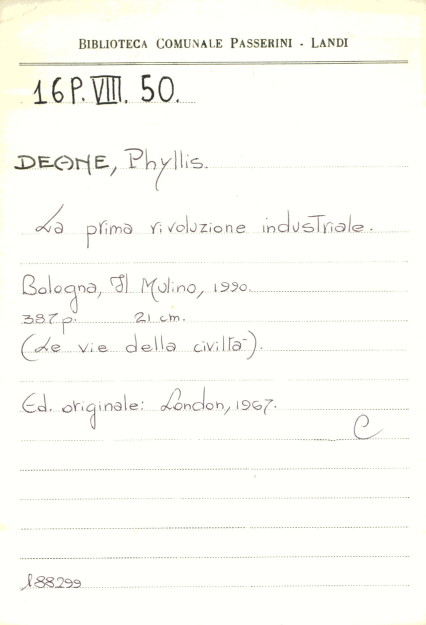 BIBLIOTECA COMUNALE PASSERINI - LANDI
16P. VIII. 50.
DEANE, Phyllis.
La prima rivoluzione industriale.
Bologna, Il Mulino, 1990.
387 p. 21 cm.
(Le vie della civiltà).
Ed. originale: London, 1967.
C
188299